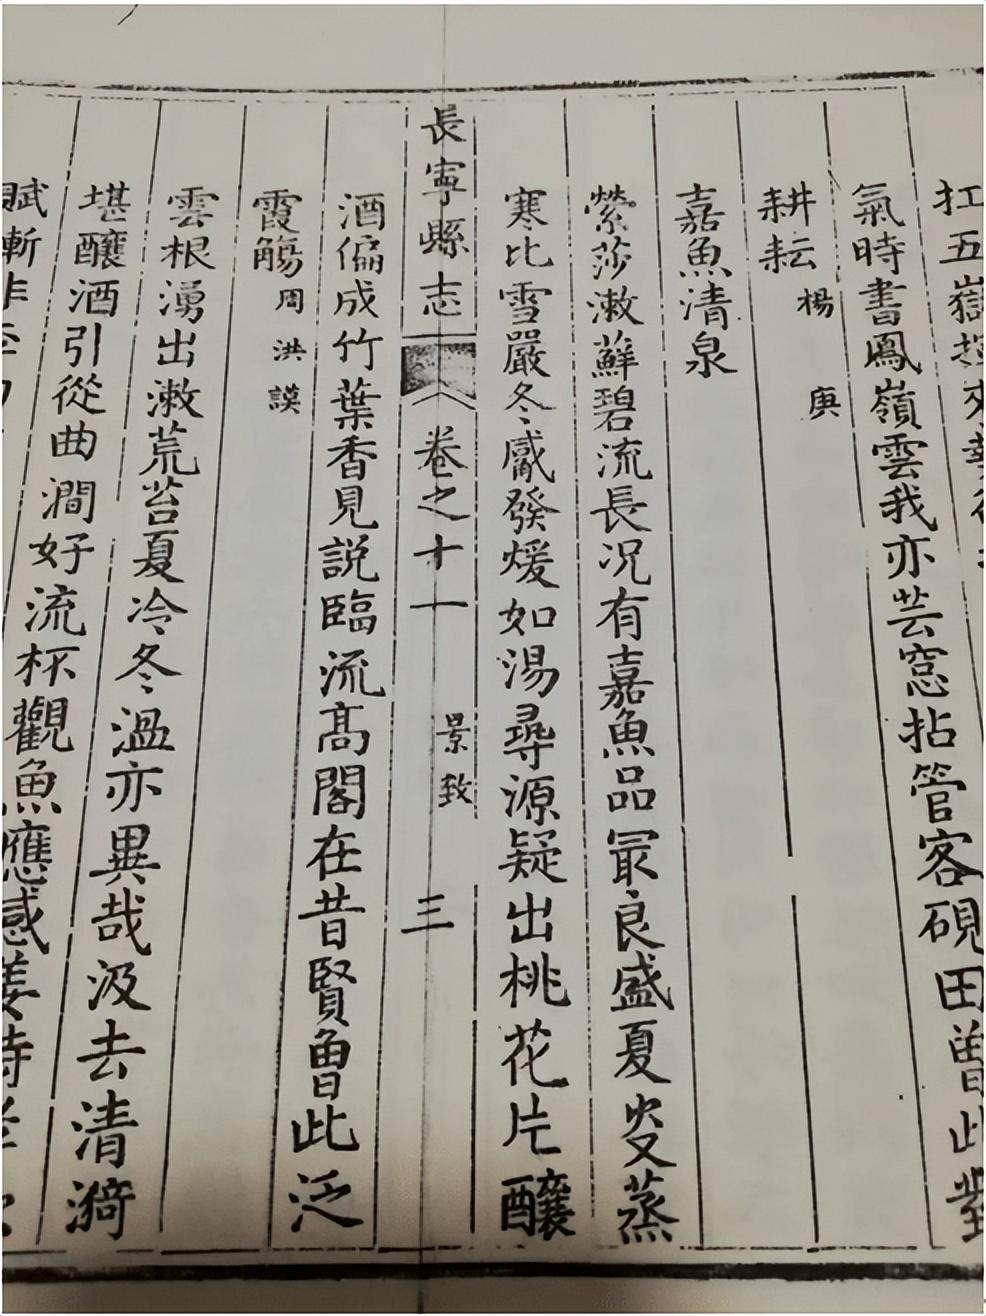 扛五嶽
氣時書鳳嶺雲我亦芸窓拈管客硯田曾此對
耕耘 楊庚
嘉魚清泉
縈莎漱蘚碧流長况有嘉魚品最良盛夏炎蒸
寒比雪嚴冬觱發煖如湯尋源疑出桃花片釀
長寧縣志 卷之十一 景致 三
酒偏成竹葉香見説臨流高閣在昔賢曾此泛
霞觴 周洪謨
雲根湧出漱荒苔夏冷冬溫亦異哉汲去清漪
堪釀酒引從曲澗好流杯觀魚應感姜詩孝
賦慚非